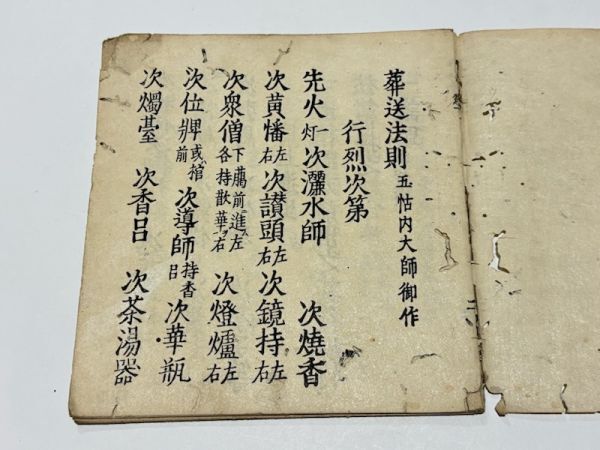 葬送法則 玉怙内大師御作
行烈次第
先火灯一次灑水師 次燒香
次黄幡左右次讃頭左右次鏡持左右
次衆僧下﨟前進ス左各持散華ヲ右 次燈爐左右
次位牌或棺前 次導師持香呂 次華瓶
次燭臺 次香呂 次茶湯器